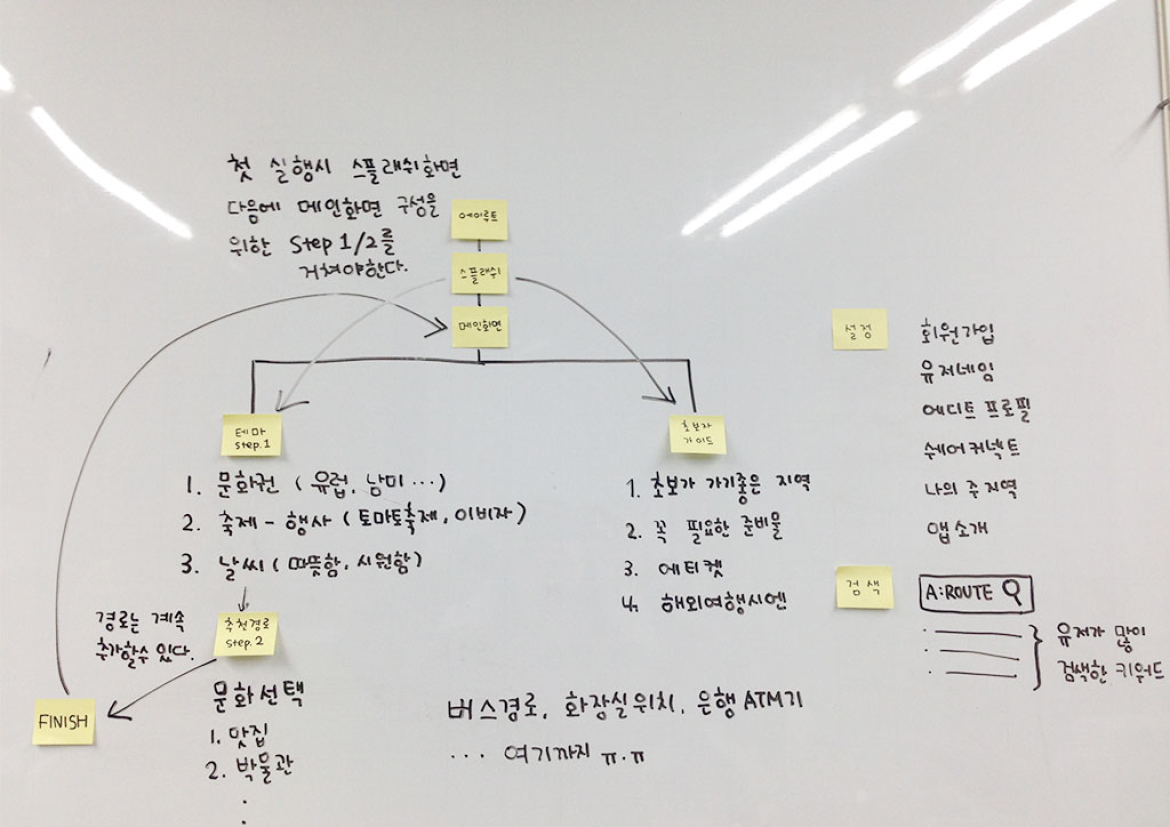 첫 실행시 스플래쉬화면
다음에 메인화면 구성을
위한 Step 1/2를
거쳐야한다.
에이루트
스플래쉬
메인화면
테마
step.1
1. 문화권 ( 유럽, 남미 ···)
2. 축제 - 행사 ( 토마토축제, 이비자 )
3. 날씨 ( 따뜻함, 시원함 )
경로는 계속
추가할수 있다.
추천경로
step.2
FINISH
문화선택
1. 맛집
2. 박물관
초보자
가이드
1. 초보가 가기좋은 지역
2. 꼭 필요한 준비물
3. 에티켓
4. 해외여행시엔
버스경로, 화장실위치, 은행 ATM기
··· 여기까지 ㅠ.ㅠ
설정
회원가입
유저네임
에디트 프로필
쉐어커넥트
나의 주 지역
앱소개
검색
A:ROUTE
유저가 많이
검색한 키워드